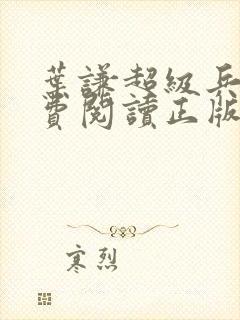 葉謙超級兵
費閱讀正版
寒烈